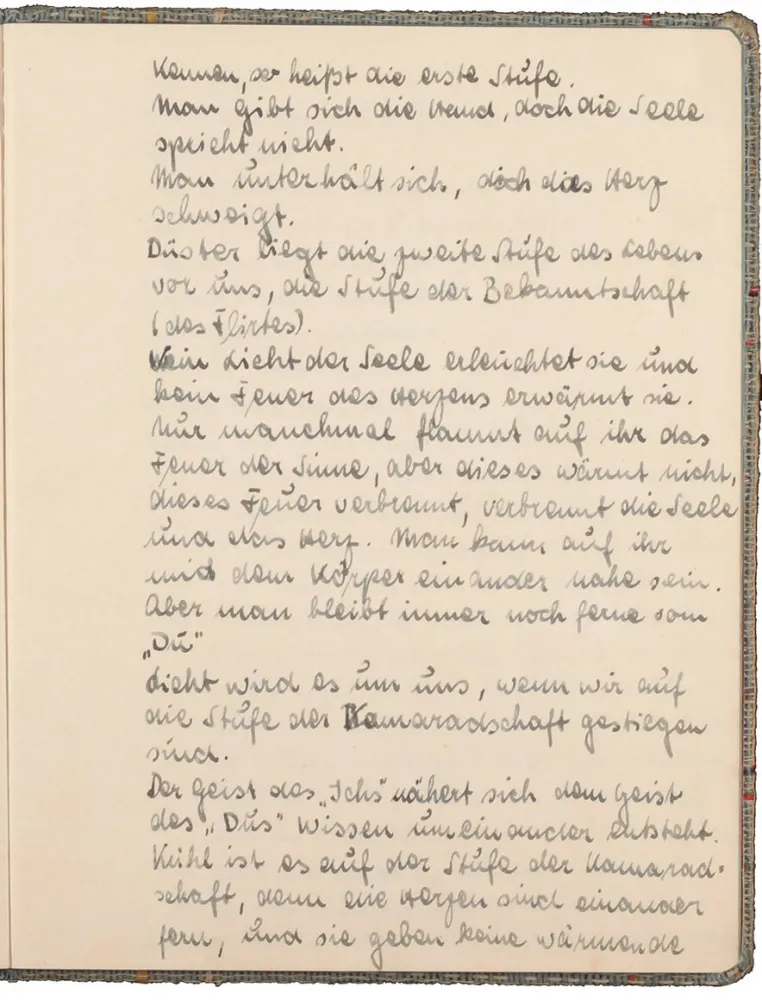 Kennen, so heißt die erste Stufe.
Man gibt sich die Hand, doch die Seele
spricht nicht.
Man unterhält sich, doch das Herz
schweigt.
Düster liegt die zweite Stufe des Lebens
vor uns, die Stufe der Bekanntschaft
(des Flirtes).
Kein Licht der Seele erleuchtet sie und
kein Feuer des Herzens erwärmt sie.
Nur manchmal flammt auf ihr das
Feuer der Sinne, aber dieses wärmt nicht,
dieses Feuer verbrennt, verbrennt die Seele
und das Herz. Man kann auf ihr
mid dem Körper einander nahe sein.
Aber man bleibt immer noch ferne vom
„Du"
Licht wird es um uns, wenn wir auf
die Stufe der Kamaradschaft gestiegen
sind.
Der Geist des „Ichs" nähert sich dem Geist
des „Dus" Wissen umeinander entsteht.
Kühl ist es auf der Stufe der Kamarad-
schaft, denn die Herzen sind einander
fern, und sie geben keine wärmende